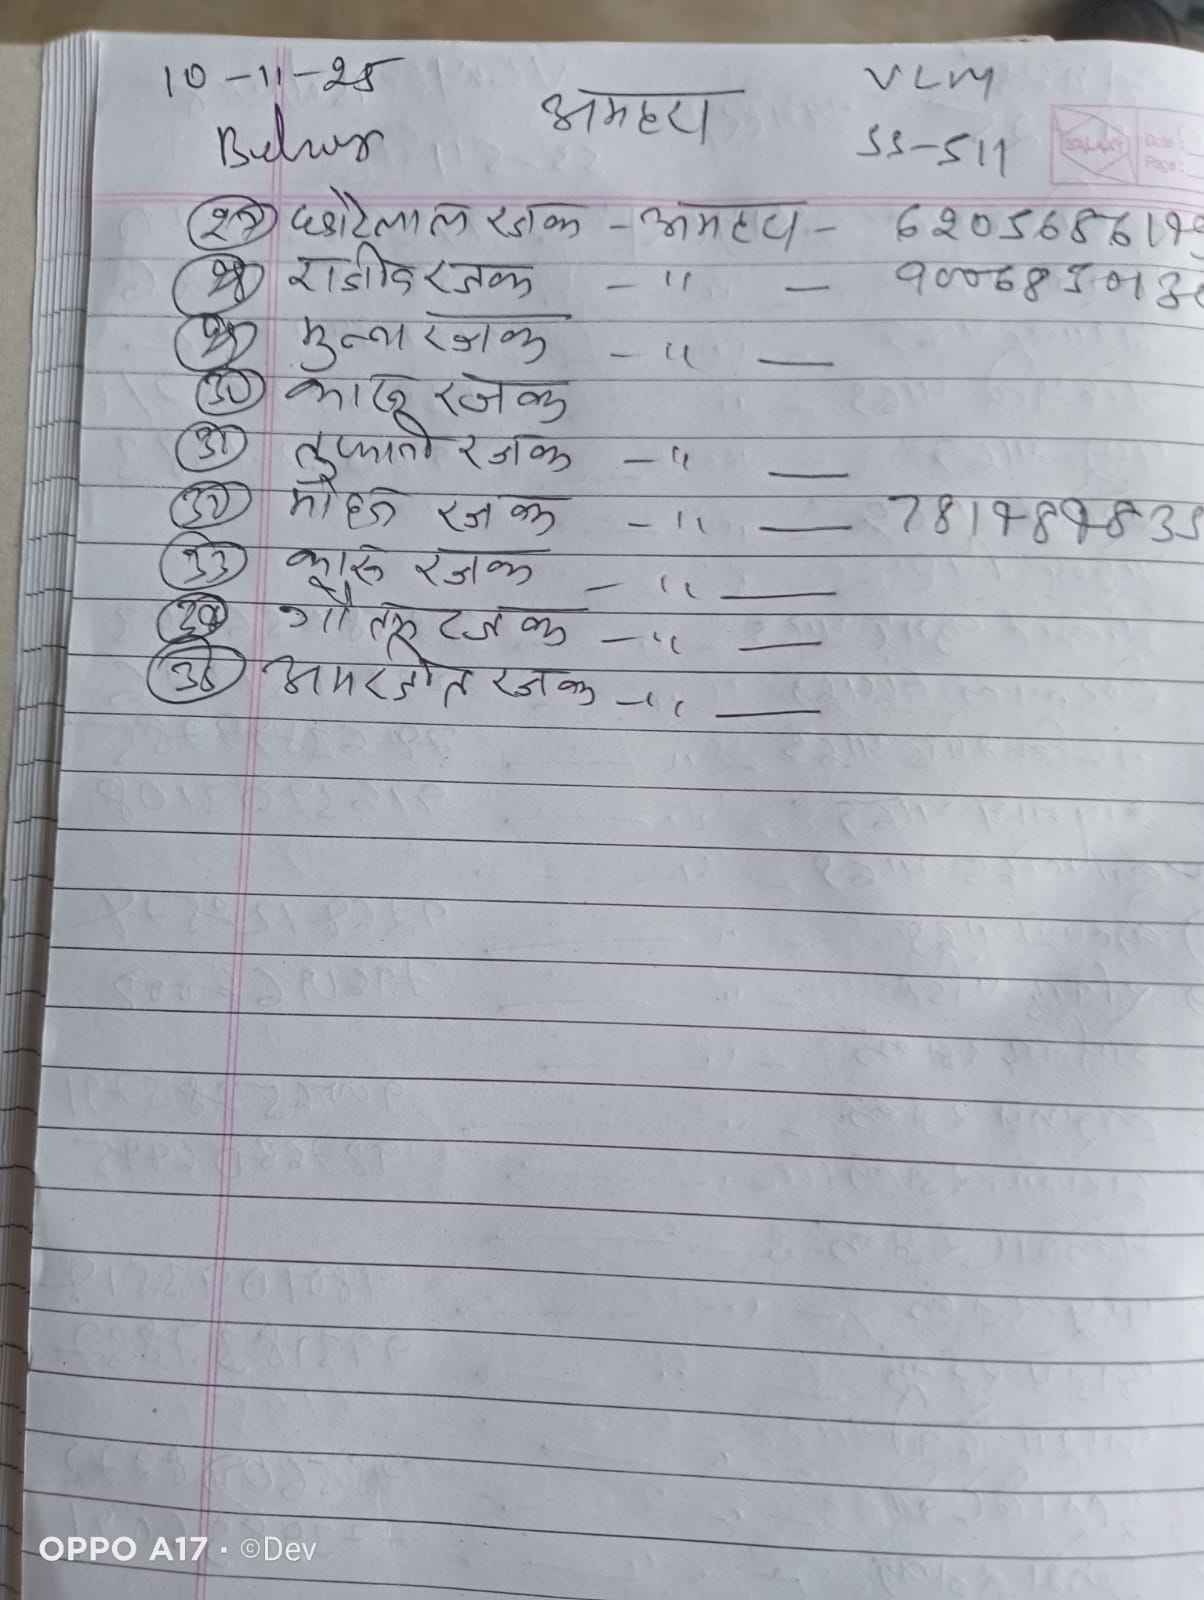 10-11-25 अमहरा VLM
Bihar SS-511
(27) छोटेलाल रजक - अमहरा - 620568619
(28) राजीव रजक - " - 900685013
(29) मुन्ना रजक - " —
(30) कारू रजक
(31) तुफानी रजक - " —
(32) मोहन रजक - " —
(33) कारू रजक - " —
(34) गौतम रजक - " —
(35) अमरजीत रजक - " —
OPPO A17 · ©Dev